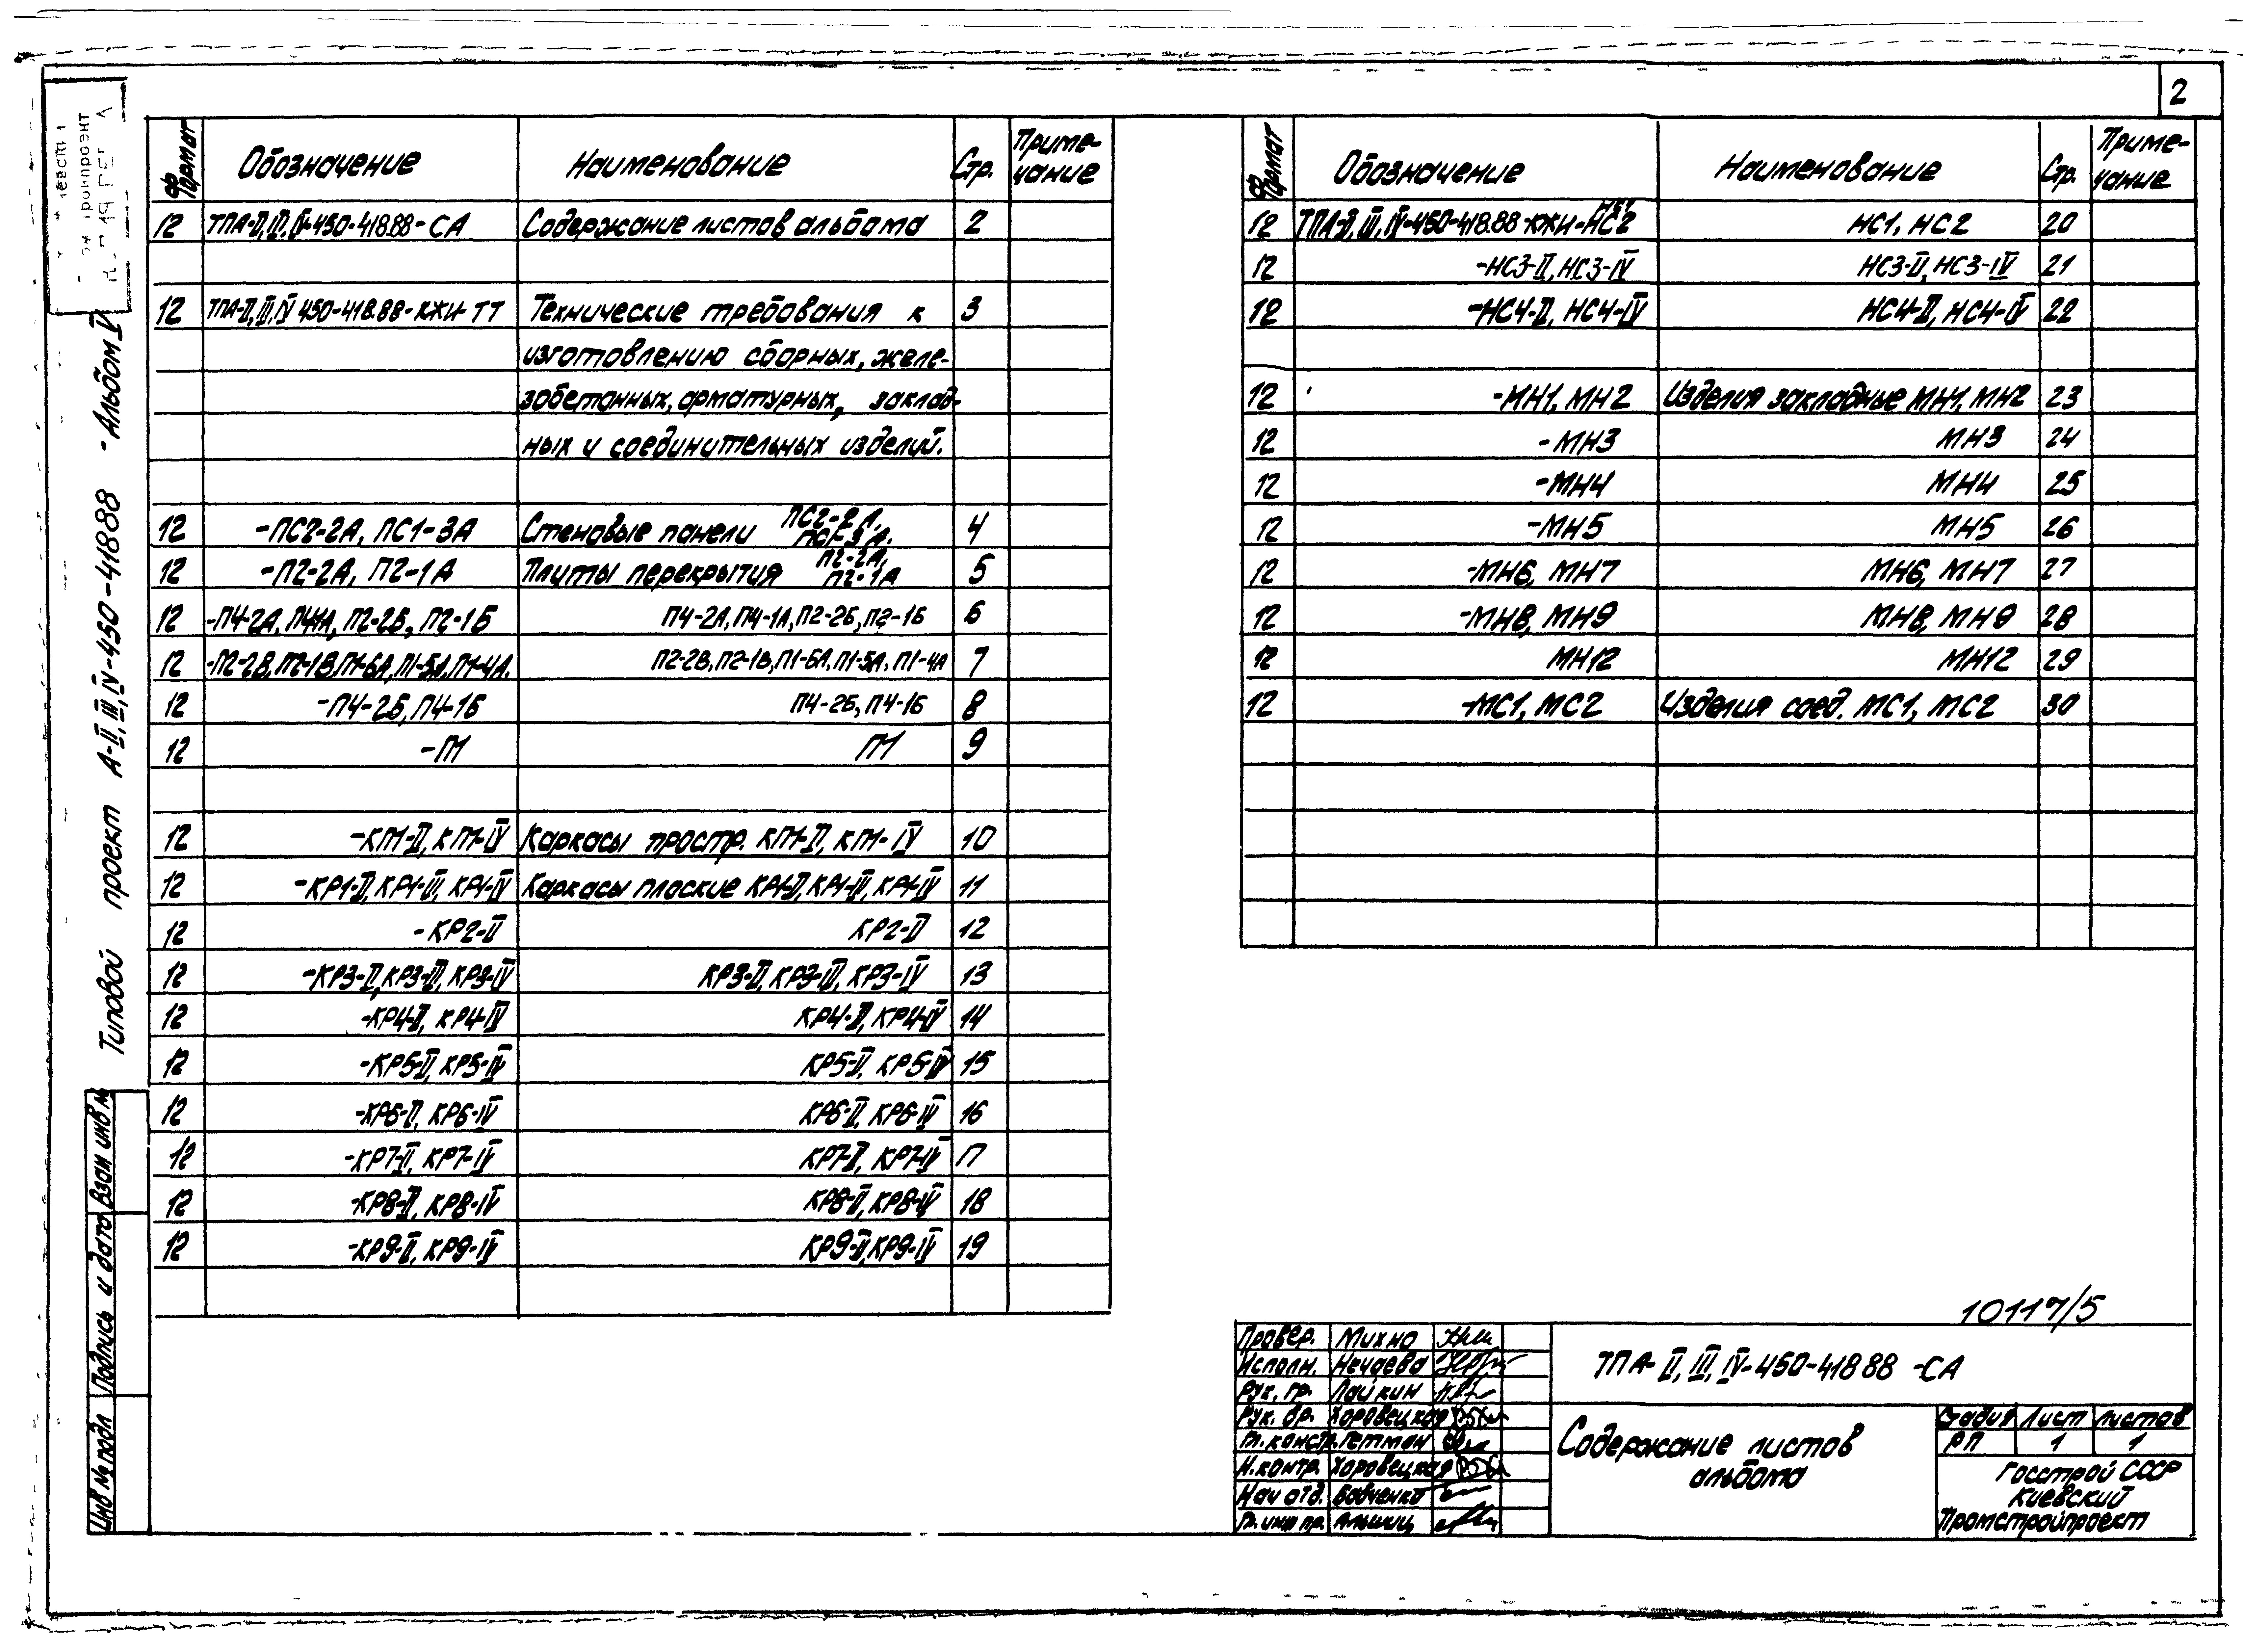 2
Формат Обозначение Наименование Стр. Приме-чание
12 ТПА-II, III, IV-450-418.88-СА Содержание листов альбома 2
12 ТПА-II, III, IV 450-418.88-КЖИ-ТТ Технические требования к 3
изготовлению сборных, желе-
зобетонных, арматурных, заклад-
ных и соединительных изделий.
12 -ПС2-2А, ПС1-3А Стеновые панели ПС2-2А, ПС1-3А. 4
12 -П2-2А, П2-1А Плиты перекрытия П2-2А, П2-1А 5
12 -П4-2А, П4-1А, П2-2Б, П2-1Б П4-2А, П4-1А, П2-2Б, П2-1Б 6
12 -П2-2В, П2-1В, П1-6А, П1-5А, П1-4А. П2-2В, П2-1В, П1-6А, П1-5А, П1-4А 7
12 -П4-2Б, П4-1Б П4-2Б, П4-1Б 8
12 -П1 П1 9
12 -КП1-II, КП1-IV Каркасы простр. КП1-II, КП1-IV 10
12 -КР1-II, КР1-III, КР1-IV Каркасы плоские КР1-II, КР1-III, КР1-IV 11
12 -КР2-II КР2-II 12
12 -КР3-II, КР3-III, КР3-IV КР3-II, КР3-III, КР3-IV 13
12 -КР4-II, КР4-IV КР4-II, КР4-IV 14
12 -КР5-II, КР5-IV КР5-II, КР5-IV 15
12 -КР6-II, КР6-IV КР6-II, КР6-IV 16
12 -КР7-II, КР7-IV КР7-II, КР7-IV 17
12 -КР8-II, КР8-IV КР8-II, КР8-IV 18
12 -КР9-II, КР9-IV КР9-II, КР9-IV 19
Формат Обозначение Наименование Стр. Приме-чание
12 ТПА-II, III, IV-450-418.88-КЖИ-НС1 НС2 НС1, НС2 20
12 -НС3-II, НС3-IV НС3-II, НС3-IV 21
12 -НС4-II, НС4-IV НС4-II, НС4-IV 22
12 -МН1, МН2 Изделия закладные МН1, МН2 23
12 -МН3 МН3 24
12 -МН4 МН4 25
12 -МН5 МН5 26
12 -МН6, МН7 МН6, МН7 27
12 -МН8, МН9 МН8, МН9 28
12 МН12 МН12 29
12 -МС1, МС2 Изделия соед. МС1, МС2 30
Типовой проект А-II, III, IV-450-418.88 -Альбом V
Взам инв №
Подпись и дата
Инв № подл
10117/5
Провер. Михно
Исполн. Нечаева
Рук. гр. Лайкин
Рук. бр. Хоровецкая
Гл. констр. Гетман
Н. контр. Хоровецкая
Нач отд. Бабченко
Гл. инж пр. Альшиц
ТПА- II, III, IV-450-418 88 -СА
Содержание листов
альбома
Стадия Лист Листов
РП 1 1
Госстрой СССР
Киевский
Промстройпроект